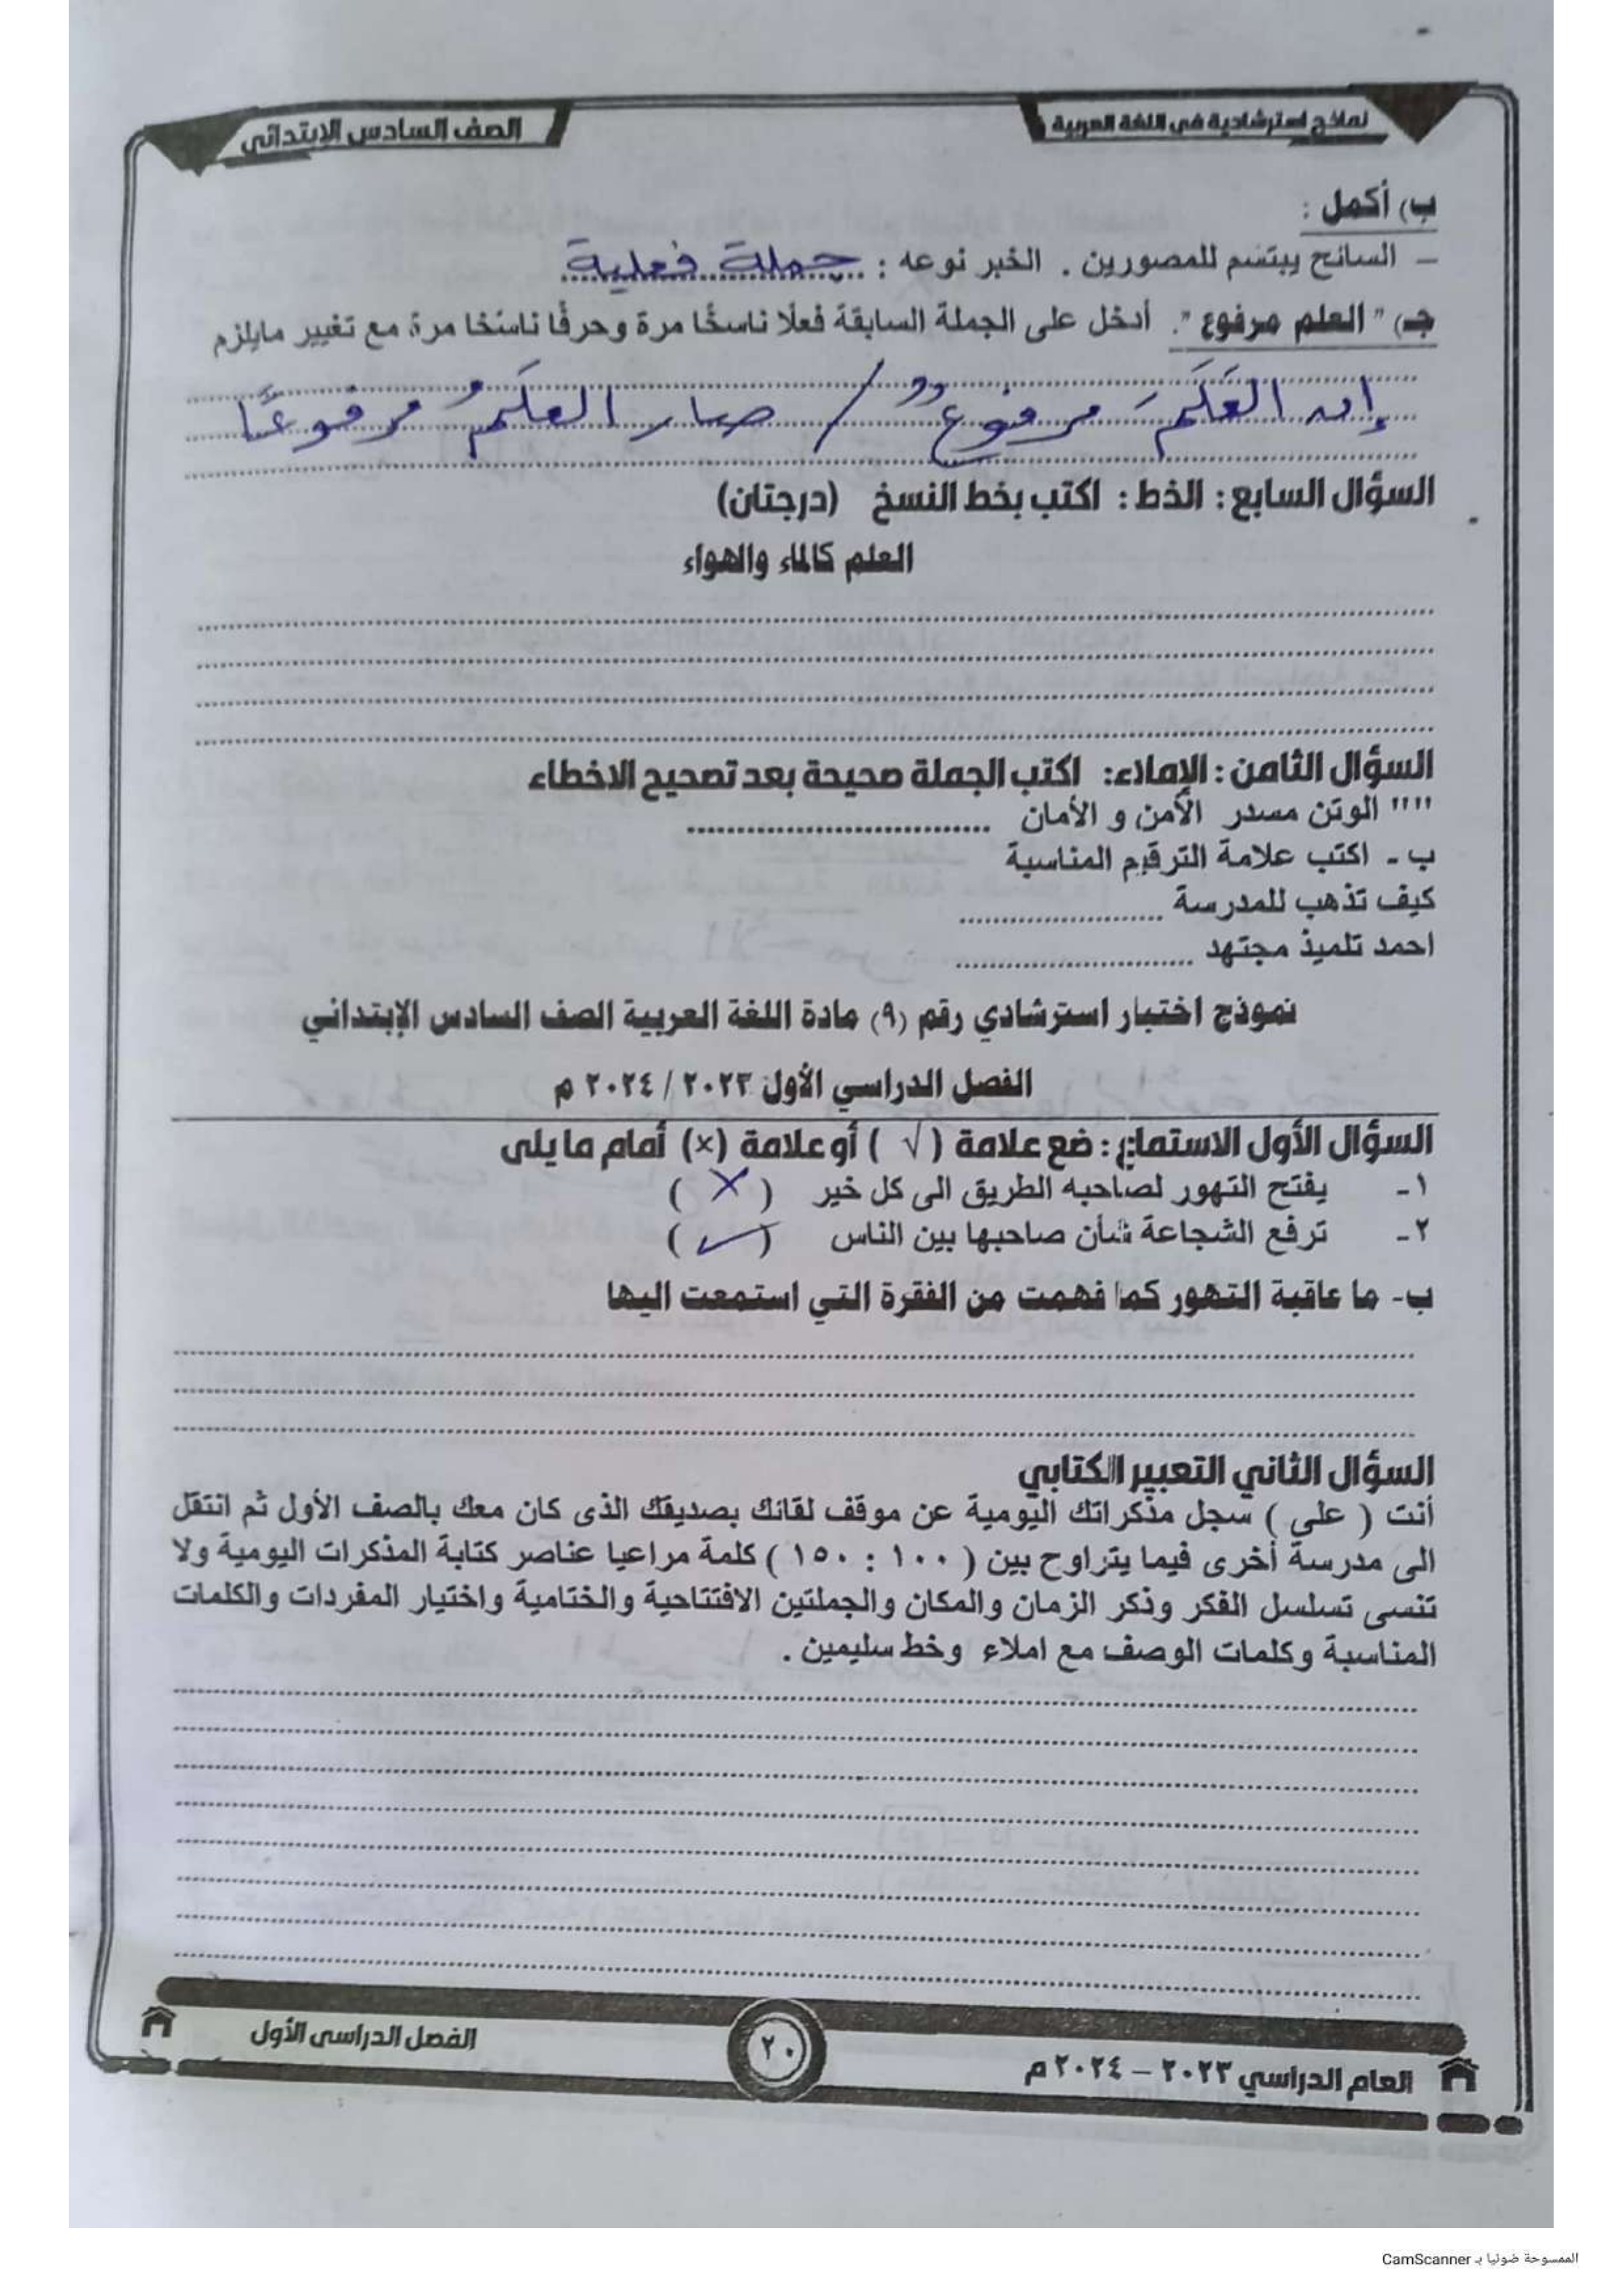 نماذج استرشادية في اللغة العربية
الصف السادس الإبتدائي
ب) أكمل :
– السائح يبتسم للمصورين . الخبر نوعه : جملة فعلية
جـ) " العلم مرفوع ". أدخل على الجملة السابقة فعلًا ناسخًا مرة وحرفًا ناسخًا مرة مع تغيير مايلزم
إن العَلَمَ مرفوعٌ / صار العَلَمُ مرفوعًا
السؤال السابع : الخط : اكتب بخط النسخ (درجتان)
العلم كالماء والهواء
السؤال الثامن : الإملاء: اكتب الجملة صحيحة بعد تصحيح الاخطاء
"" الوتن مسدر الأمن و الأمان
ب - اكتب علامة الترقيم المناسبة
كيف تذهب للمدرسة
احمد تلميذ مجتهد
نموذج اختبار استرشادي رقم (٩) مادة اللغة العربية الصف السادس الإبتدائي
الفصل الدراسي الأول ٢٠٢٣ / ٢٠٢٤ م
السؤال الأول الاستماع : ضع علامة ( √ ) أو علامة (×) أمام ما يلى
١- يفتح التهور لصاحبه الطريق الى كل خير ( ✗ )
٢- ترفع الشجاعة شأن صاحبها بين الناس ( ✓ )
ب- ما عاقبة التهور كما فهمت من الفقرة التي استمعت اليها
السؤال الثاني التعبير الكتابي
أنت ( على ) سجل مذكراتك اليومية عن موقف لقائك بصديقك الذى كان معك بالصف الأول ثم انتقل
الى مدرسة أخرى فيما يتراوح بين ( ١٠٠ : ١٥٠ ) كلمة مراعيا عناصر كتابة المذكرات اليومية ولا
تنسى تسلسل الفكر وذكر الزمان والمكان والجملتين الافتتاحية والختامية واختيار المفردات والكلمات
المناسبة وكلمات الوصف مع املاء وخط سليمين .
العام الدراسي ٢٠٢٣ – ٢٠٢٤ م
٢٠
الفصل الدراسى الأول
الممسوحة ضوئيا بـ CamScanner